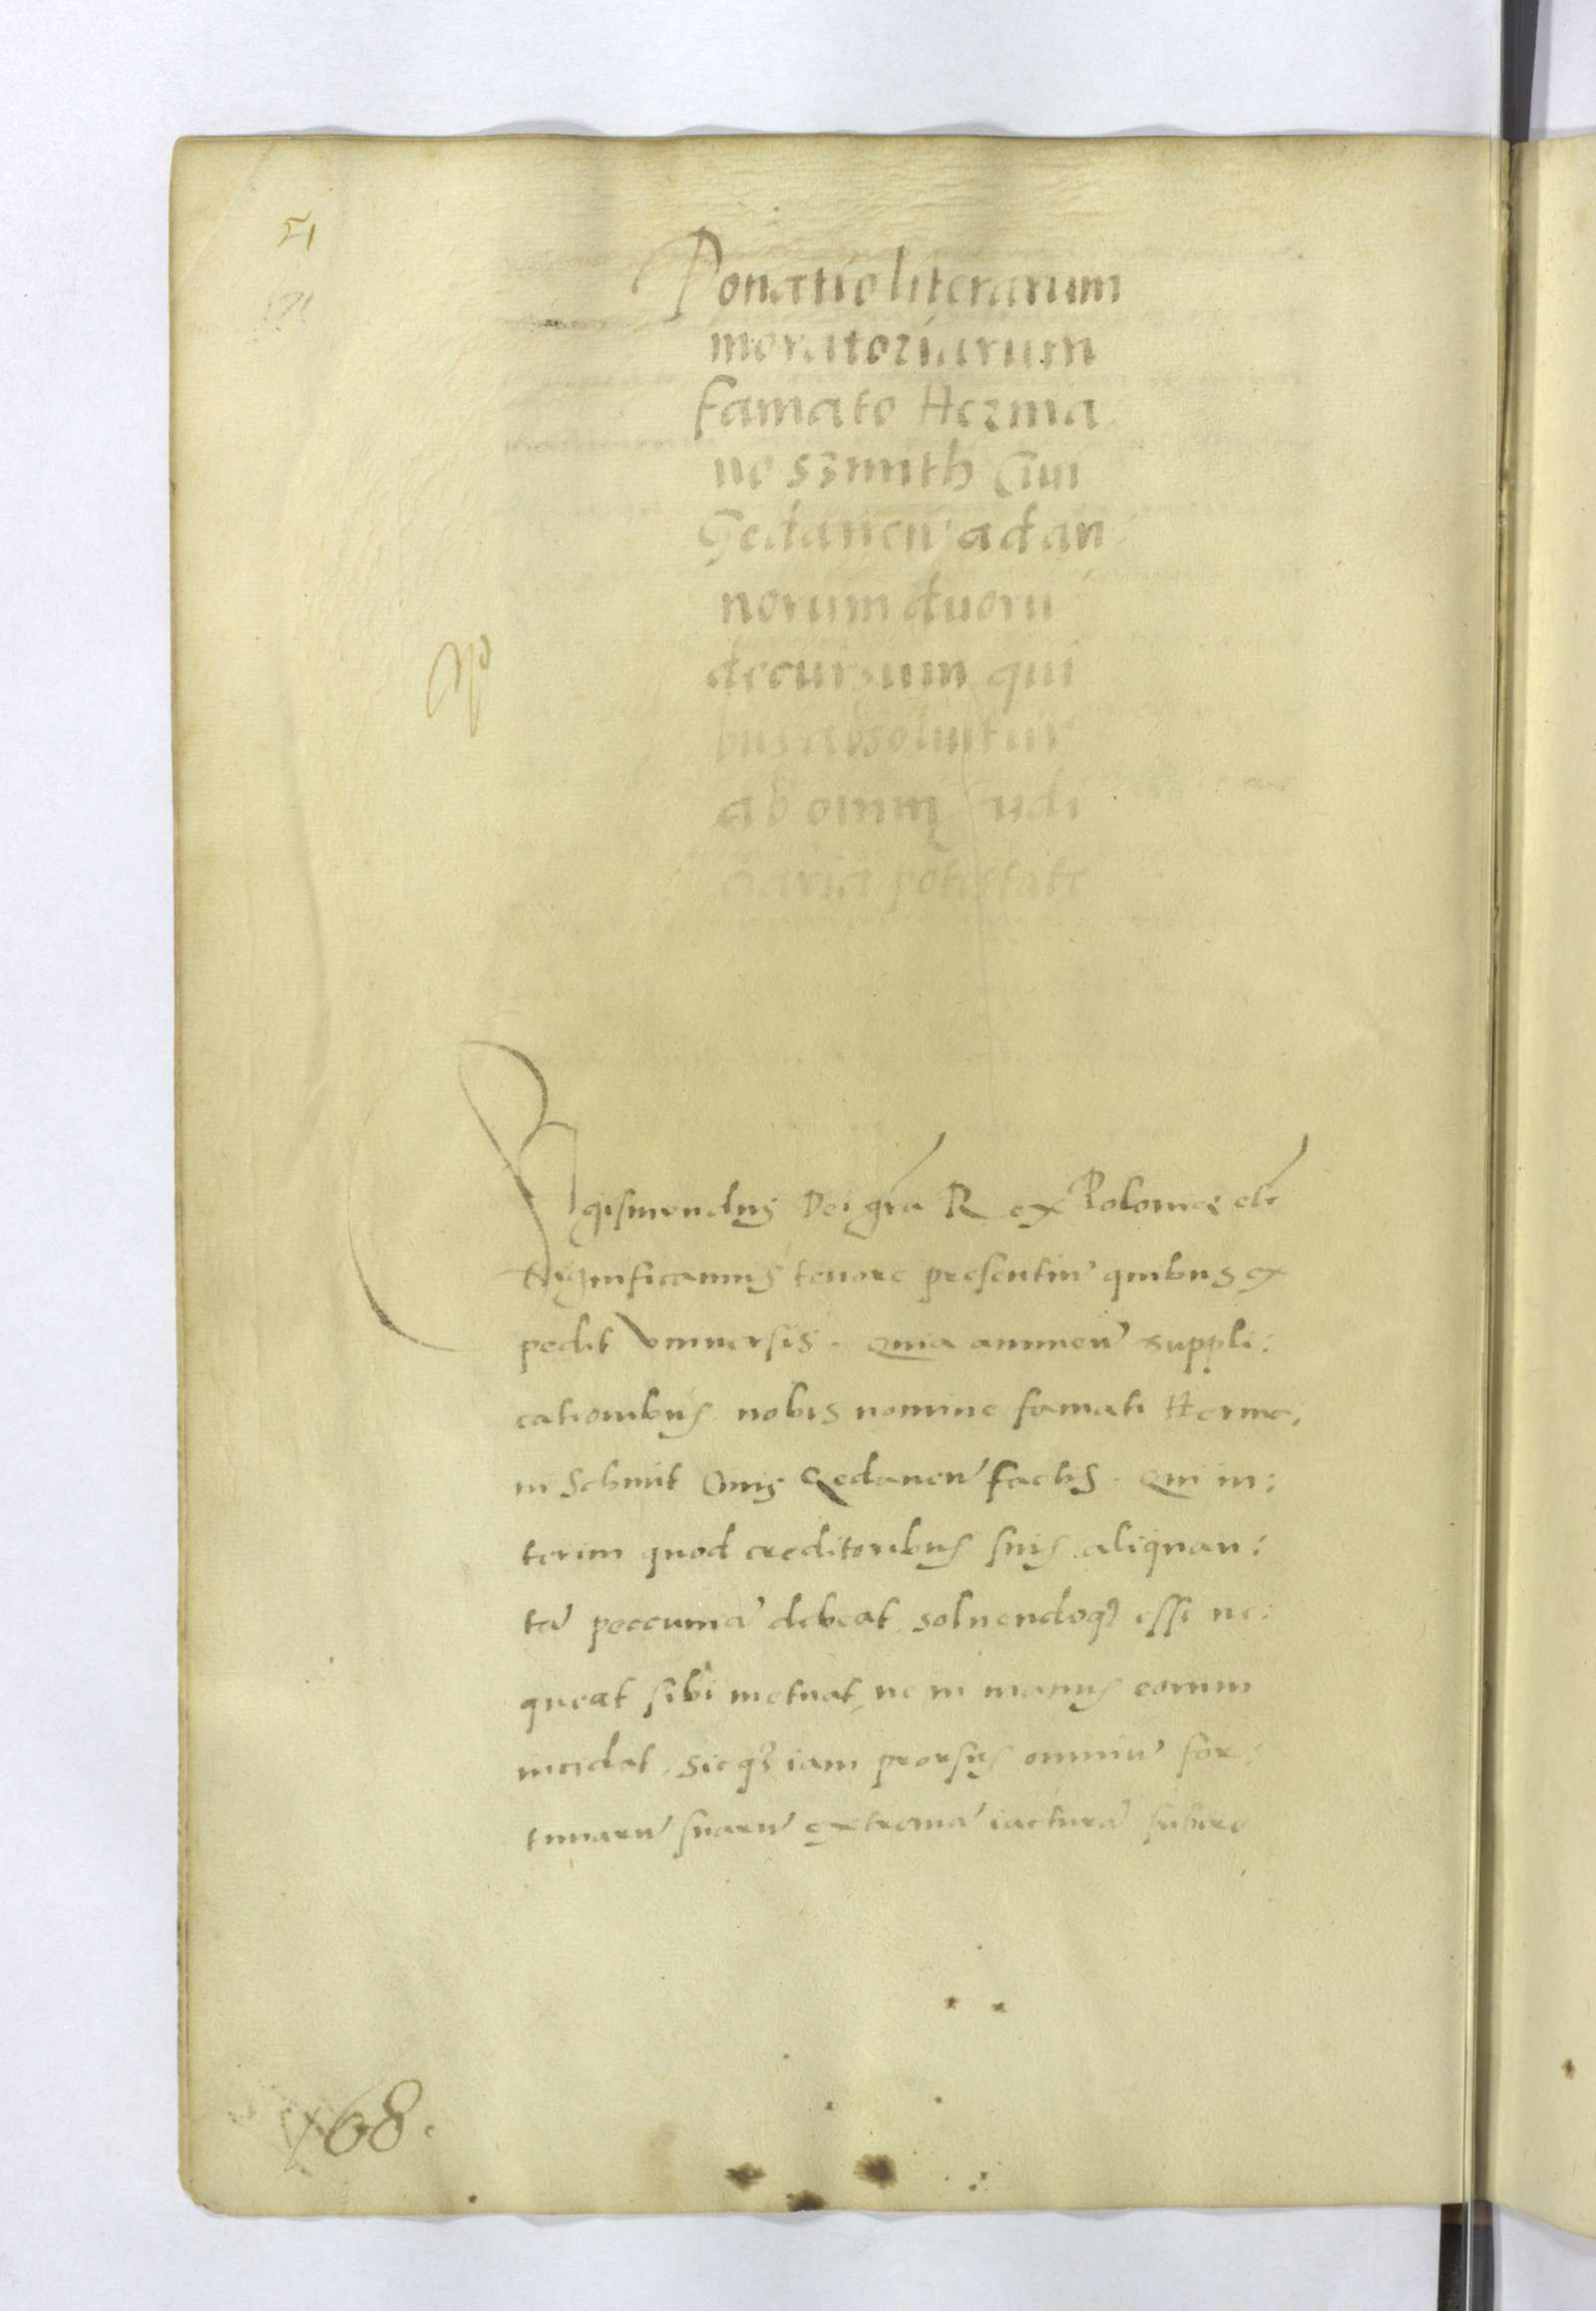 51
Donatio literarum
moratoriarum
famato Herma
no Szmith Ciui
Gedanen̄ ad an
norum duorū
decursum qui
bus absoluitur
ab omni Iudi
ciaria potestate
Sigismundus Dei gr̄a Rex Poloniæ etc̄
Significamus tenore presentiū quibus ex
pedit vniuersis. Quia ammen̄ suppli:
cationibus nobis nomine famati Herma,
ni Schmit Ciuis Gedanen̄ factis. Qui in:
terim quod creditoribus suis aliquan:
tā peccuniā debeat soluendoq₃ esse ne:
queat sibi metuat, ne in manus eorum
incidat. Sicq₃ iam prorsus omniū for:
tunarū suarū extremā iacturā subire
468.